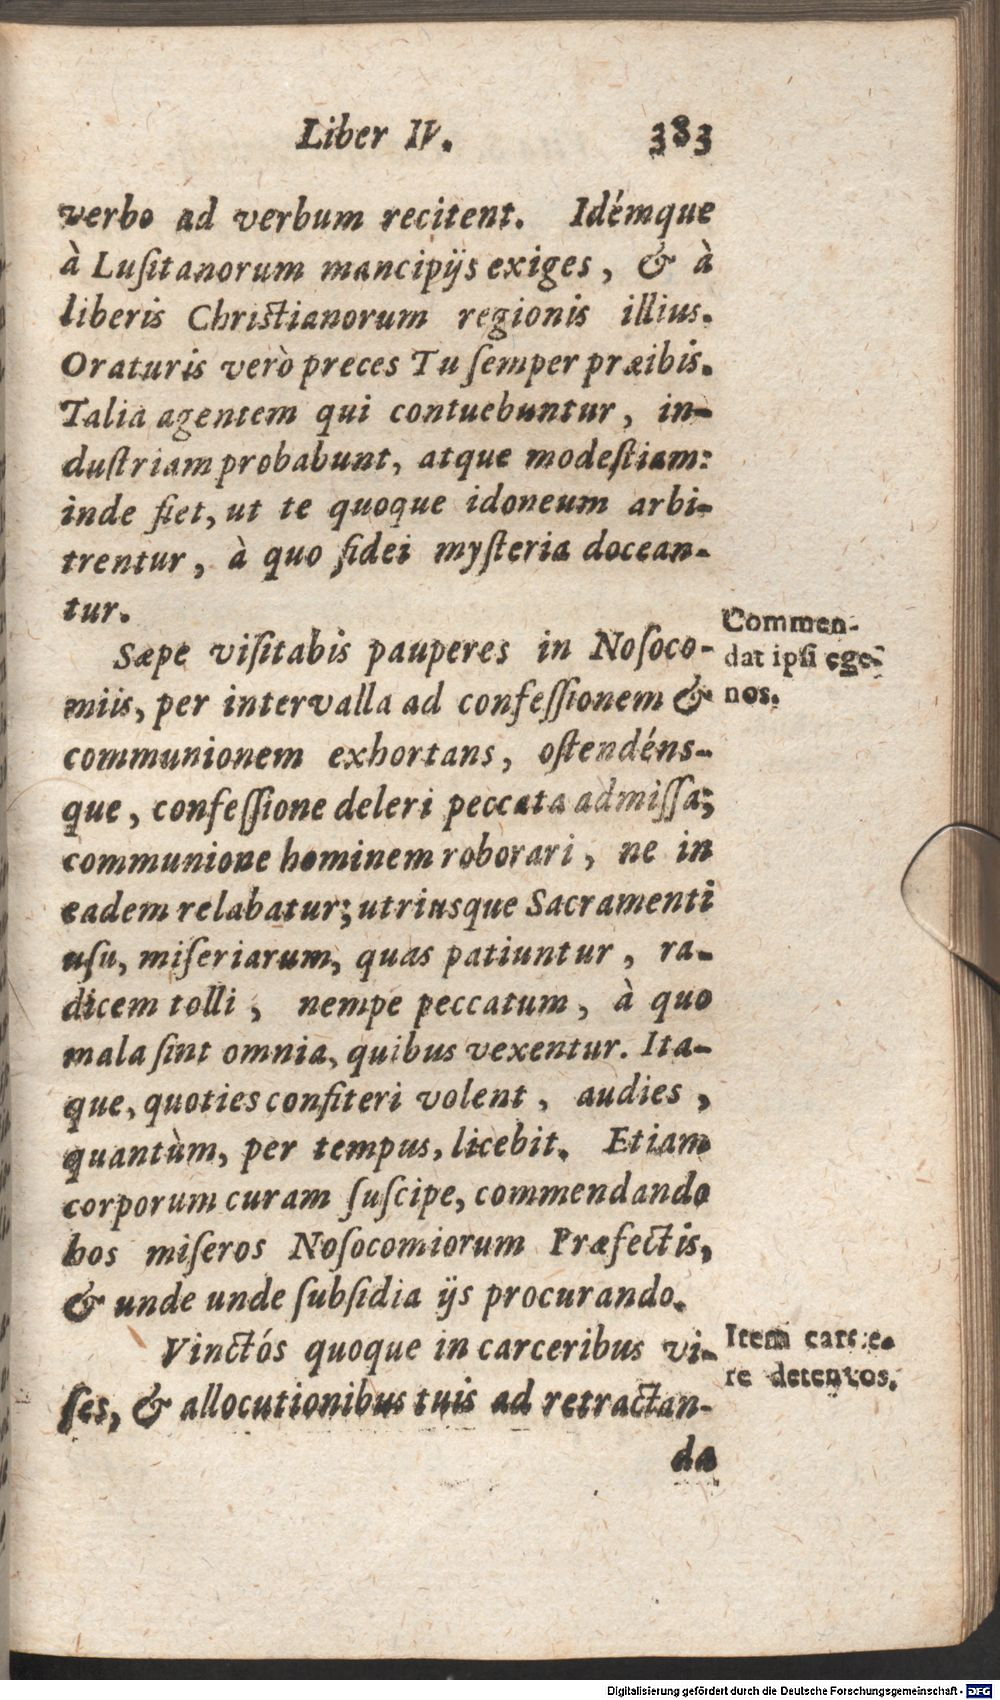 Liber IV. 383
verbo ad verbum recitent. Idémque
à Luſitanorum mancipijs exiges, & à
liberis Christianorum regionis illius.
Oraturis verò preces Tu ſemper præibis.
Talia agentem qui contuebuntur, in-
duſtriam probabunt, atque modeſtiam:
inde fiet, ut te quoque idoneum arbi-
trentur, à quo fidei myſteria docean-
tur.
Sæpe viſitabis pauperes in Noſoco-
miis, per intervalla ad confeſſionem &
communionem exhortans, oſtendéns-
que, confeſſione deleri peccata admiſſa;
communione hominem roborari, ne in
eadem relabatur; utriusque Sacramenti
uſu, miſeriarum, quas patiuntur, ra-
dicem tolli, nempe peccatum, à quo
mala ſint omnia, quibus vexentur. Ita-
que, quoties confiteri volent, audies,
quantùm, per tempus, licebit. Etiam
corporum curam ſuſcipe, commendando
hos miſeros Noſocomiorum Præfectis,
& unde unde ſubſidia ijs procurando.
Vinctós quoque in carceribus vi-
ſes, & allocutionibus tuis ad retractan-
da
Commen-
dat ipſi ege-
nos.
Item carce-
re detentos.
Digitalisierung gefördert durch die Deutsche Forschungsgemeinschaft - DFG